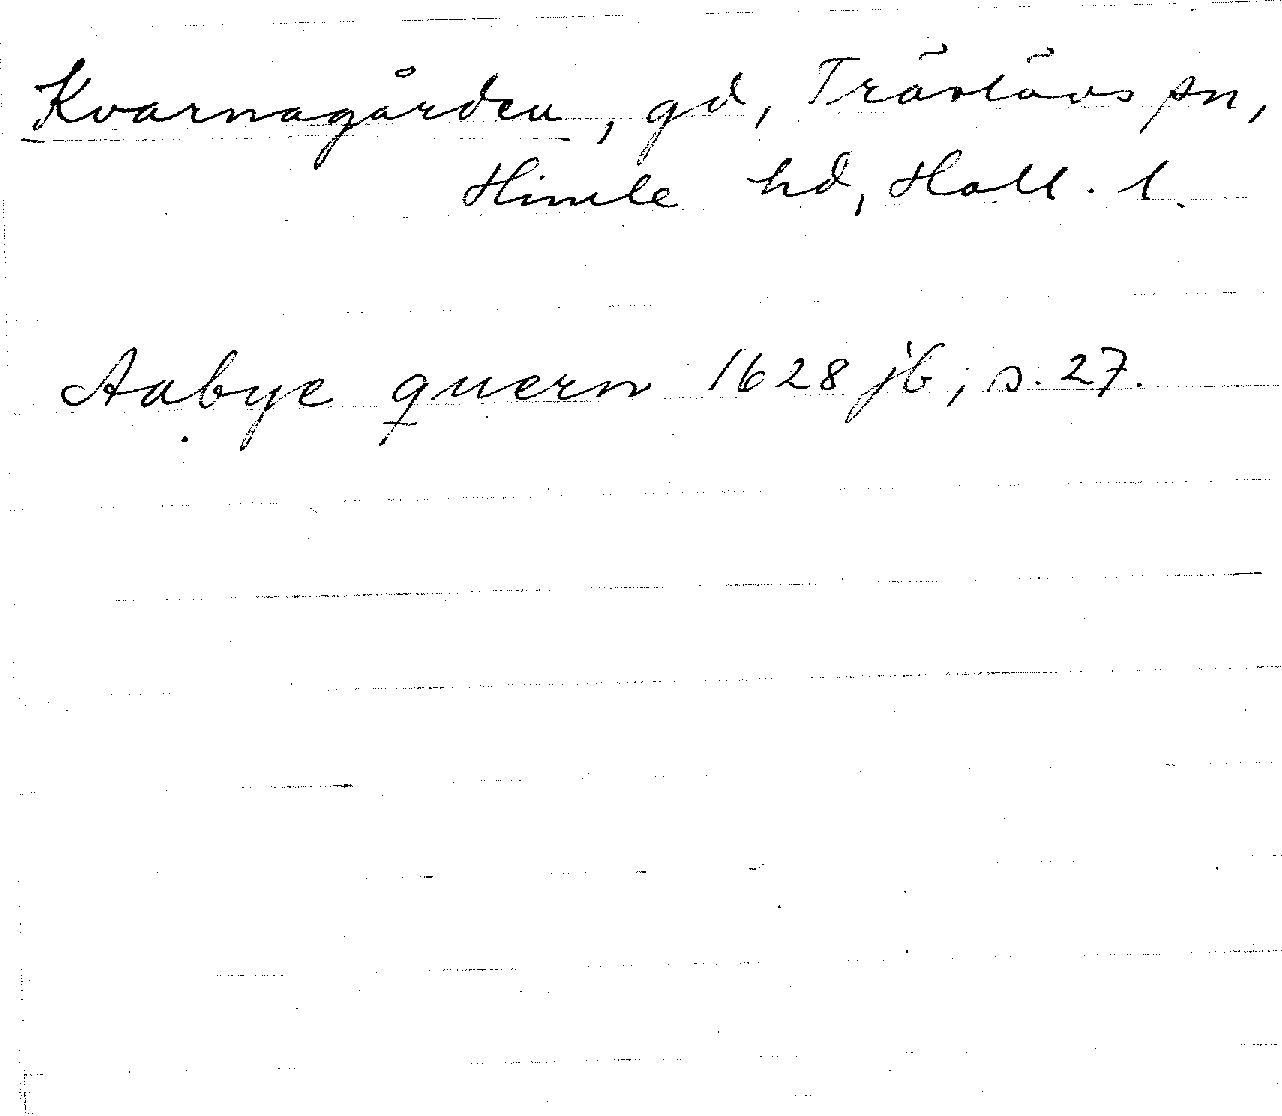 Kvarnagården, gd, Träslövs sn,
Himle hd, Hall. l.
Aabye quern 1628 jb, s. 27.